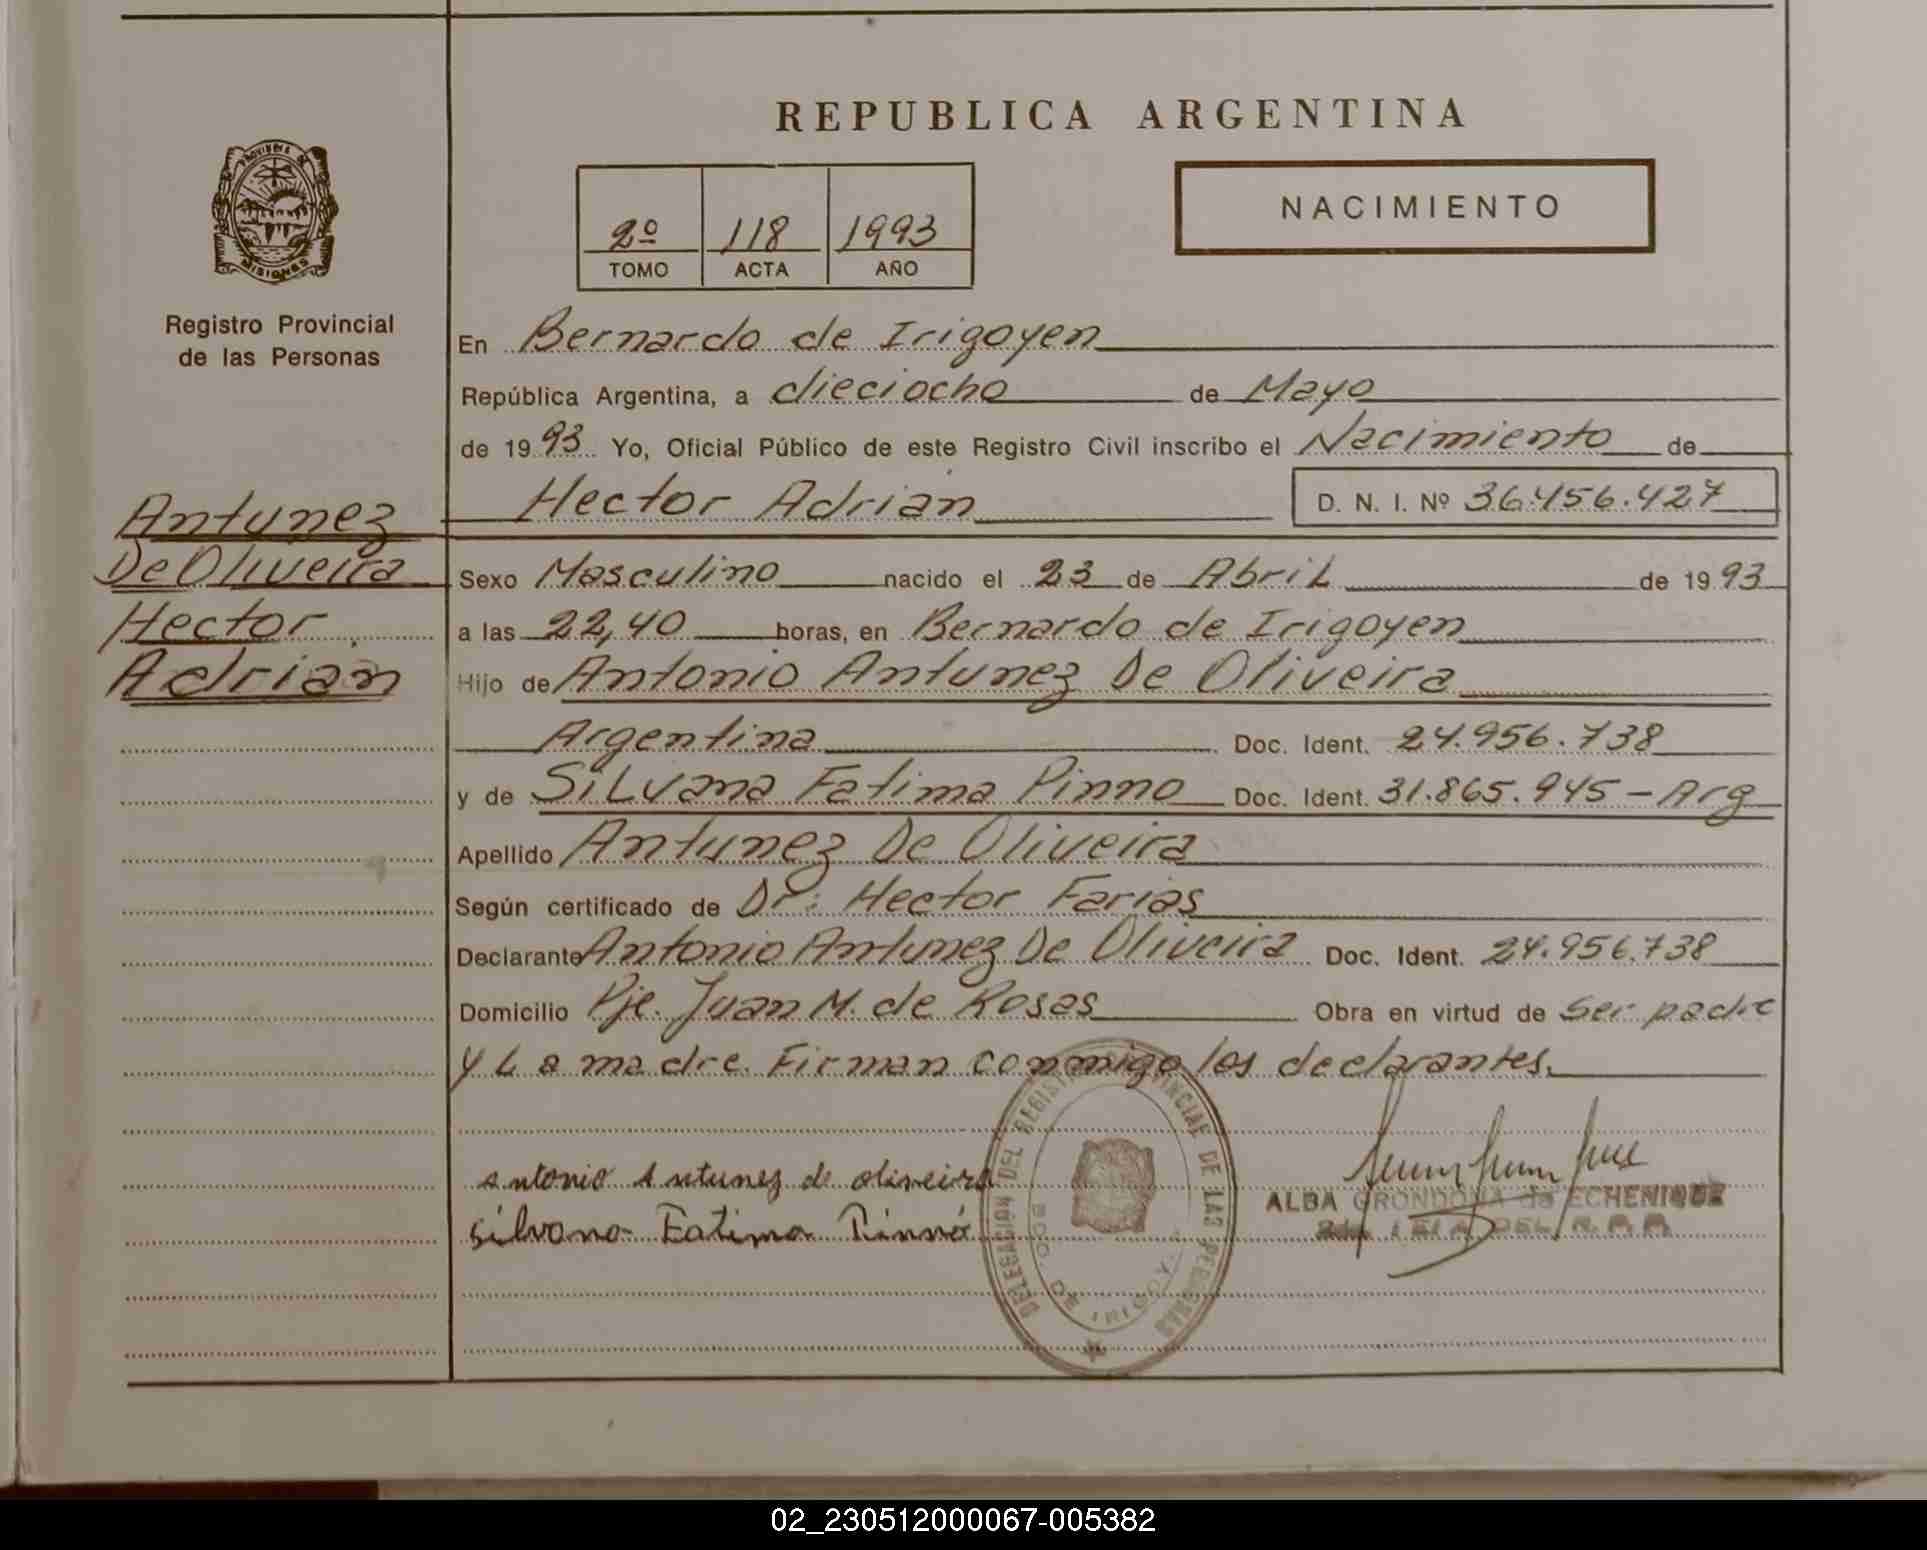 REPUBLICA ARGENTINA
PROVINCIA DE
MISIONES
Registro Provincial
de las Personas
2º 118 1993
TOMO ACTA AÑO
NACIMIENTO
En Bernardo de Irigoyen
República Argentina, a dieciocho de Mayo
de 1993 Yo, Oficial Público de este Registro Civil inscribo el Nacimiento de
Hector Adrian D. N. I. Nº 36.456.427
Antunez
De Oliveira
Hector
Adrian
Sexo Masculino nacido el 23 de Abril de 1993
a las 22,40 horas, en Bernardo de Irigoyen
Hijo de Antonio Antunez De Oliveira
Argentina Doc. Ident. 24.956.738
y de Silvana Fatima Pinno Doc. Ident. 31.865.945 - Arg
Apellido Antunez De Oliveira
Según certificado de Dr: Hector Farias
Declarante Antonio Antunez De Oliveira Doc. Ident. 24.956.738
Domicilio Pje. Juan M. de Rosas Obra en virtud de Ser padre
y La madre. Firman conmigo los declarantes.
Antonio Antunez de oliveira
Silvana Fatima Pinno
DELEGACIÓN DEL REGISTRO PROVINCIAL DE LAS PERSONAS
BDO. DE IRIGOY.
ALBA GRONDONA de ECHENIQUE
DEL R. P. P.
02_230512000067-005382